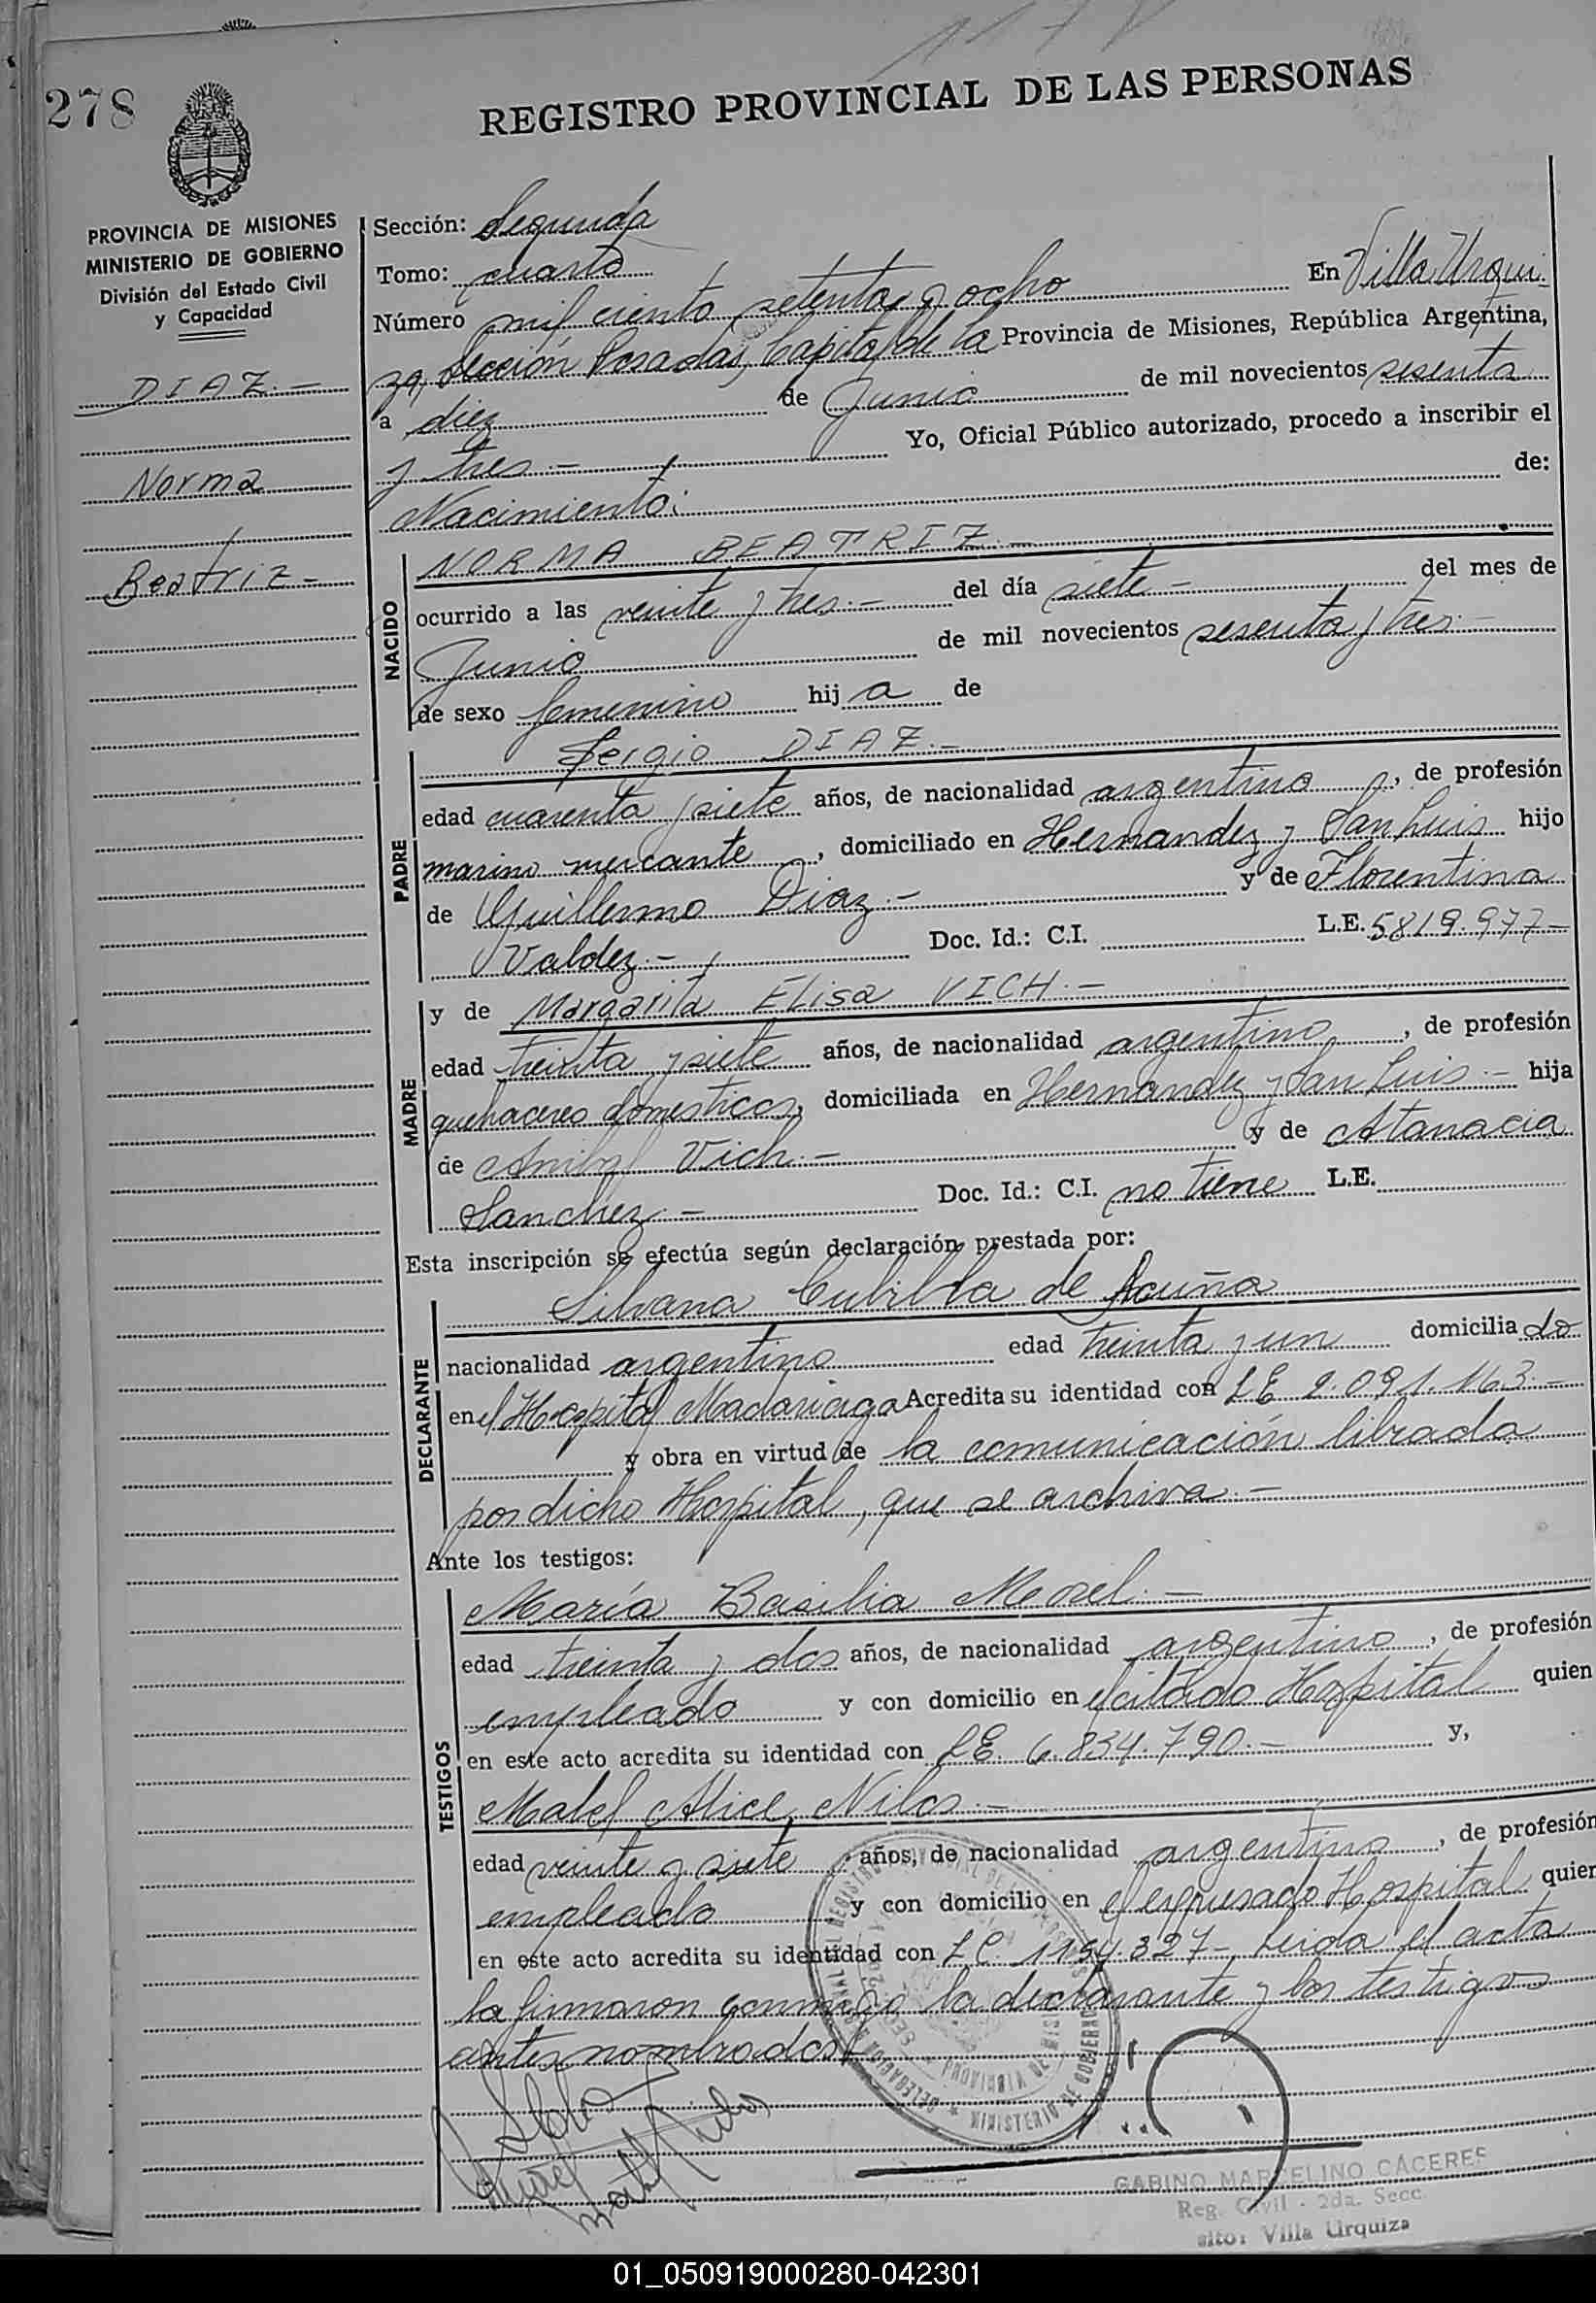 278
REGISTRO PROVINCIAL DE LAS PERSONAS
PROVINCIA DE MISIONES
MINISTERIO DE GOBIERNO
División del Estado Civil
y Capacidad
DIAZ.—
Norma
Beatriz—
Sección: Segunda
Tomo: cuarto
Número mil ciento setenta y ocho En Villa Urqui-
za, Sección Posadas, Capital de la Provincia de Misiones, República Argentina,
a diez de Junio de mil novecientos sesenta
y tres.— Yo, Oficial Público autorizado, procedo a inscribir el
Nacimiento: de:
NACIDO
NORMA BEATRIZ.—
ocurrido a las veinte y tres.— del día siete— del mes de
Junio de mil novecientos sesenta y tres.—
de sexo femenino hij a de
PADRE
Sergio DIAZ.—
edad cuarenta y siete años, de nacionalidad argentino, de profesión
marino mercante, domiciliado en Hernandez y San Luis hijo
de Guillermo Diaz.— y de Florentina
Valdez.— Doc. Id.: C.I. L.E. 5819.977—
MADRE
y de Margarita Elisa VICH.—
edad treinta y siete años, de nacionalidad argentino, de profesión
quehaceres domesticos, domiciliada en Hernandez y San Luis.— hija
de Anibal Vich.— y de Atanacia
Sanchez.— Doc. Id.: C.I. no tiene L.E.
Esta inscripción se efectúa según declaración prestada por:
DECLARANTE
Silvana Cubilla de Acuña
nacionalidad argentino edad treinta y un domicilia do
en el Hospital Madariaga Acredita su identidad con LE 2.091.163.—
y obra en virtud de la comunicación librada
por dicho Hospital, que se archiva.—
Ante los testigos:
TESTIGOS
María Basilia Morel.—
edad treinta y dos años, de nacionalidad argentino, de profesión
empleado y con domicilio en el citado Hospital quien
en este acto acredita su identidad con LE. 6.834.790.— y,
Mabel Alice Nilos.—
edad veinte y siete años, de nacionalidad argentino, de profesión
empleado y con domicilio en el expresado Hospital quien
en este acto acredita su identidad con L.C. 1154.327— Leida el acta
la firmaron conmigo la declarante y los testigos
antes nombrados
GABINO MARCELINO CACERES
Reg. Civil - 2da. Secc.
Villa Urquiza
01_050919000280-042301